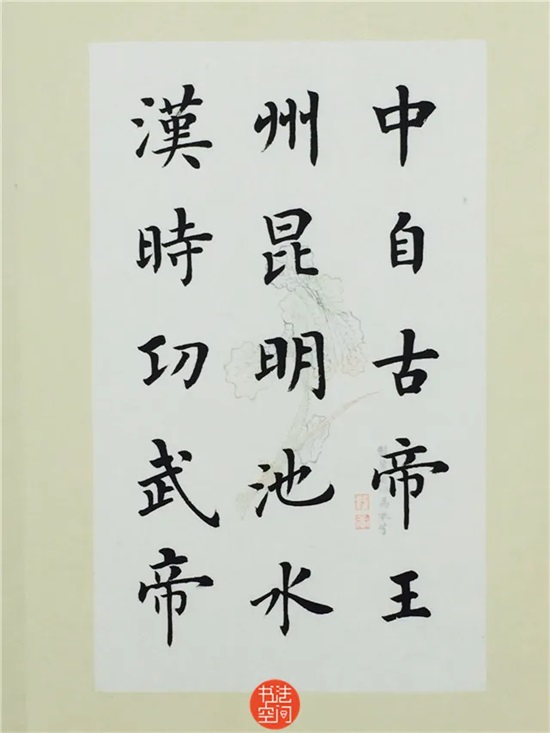 中自古帝王
州昆明池水
漢時㓛武帝
书法
空间